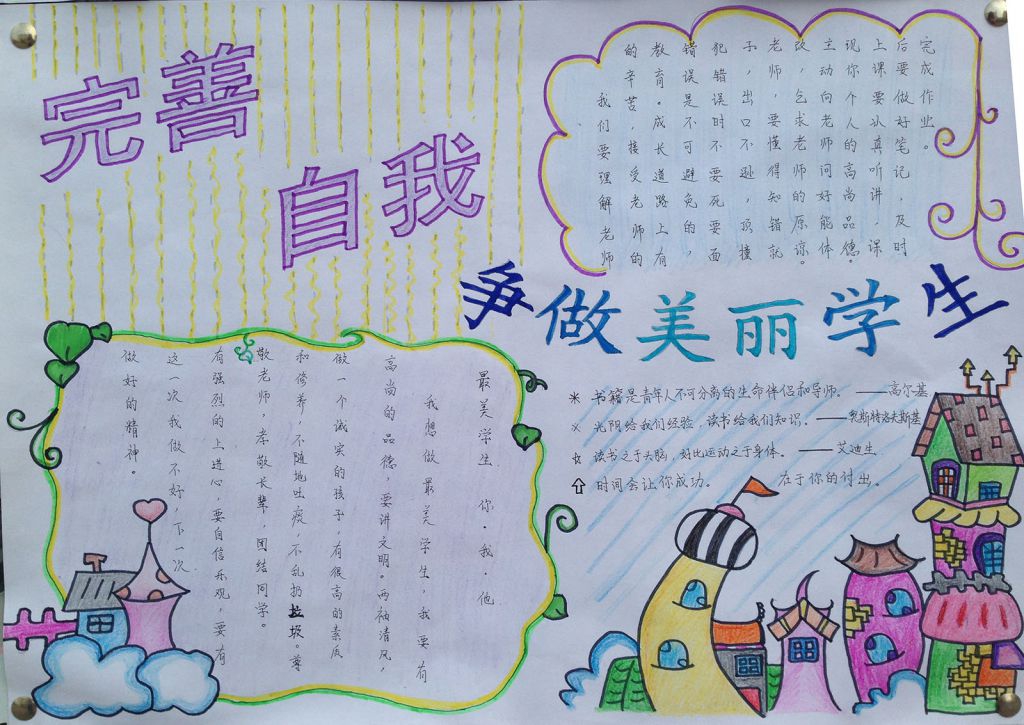 完善
自我
我们要理解老师
的辛苦,接受老师的
教育。成长道路上有
错误是不可避免的,
犯错误时不要死要面
子,出口不逊,顶撞
老师,要懂得知错就
改,乞求老师的原谅。
主动向老师问好能体
现你个人的高尚品德。
上课要认真听讲,课
后要做好笔记,及时
完成作业。
争做美丽学生
最美学生 你·我·他
我想做最美学生,我要有
高尚的品德,要讲文明。两袖清风,
做一个诚实的孩子,有很高的素质
和修养,不随地吐痰,不乱扔垃圾。尊
敬老师,孝敬长辈,团结同学。
有强烈的上进心,要自信乐观,要有
这一次我做不好,下一次
做好的精神。
书籍是青年人不可分离的生命伴侣和导师。——高尔基
光阴给我们经验,读书给我们知识。——奥斯特洛夫斯基
读书之于头脑,好比运动之于身体。——艾迪生
时间会让你成功。 在于你的付出。